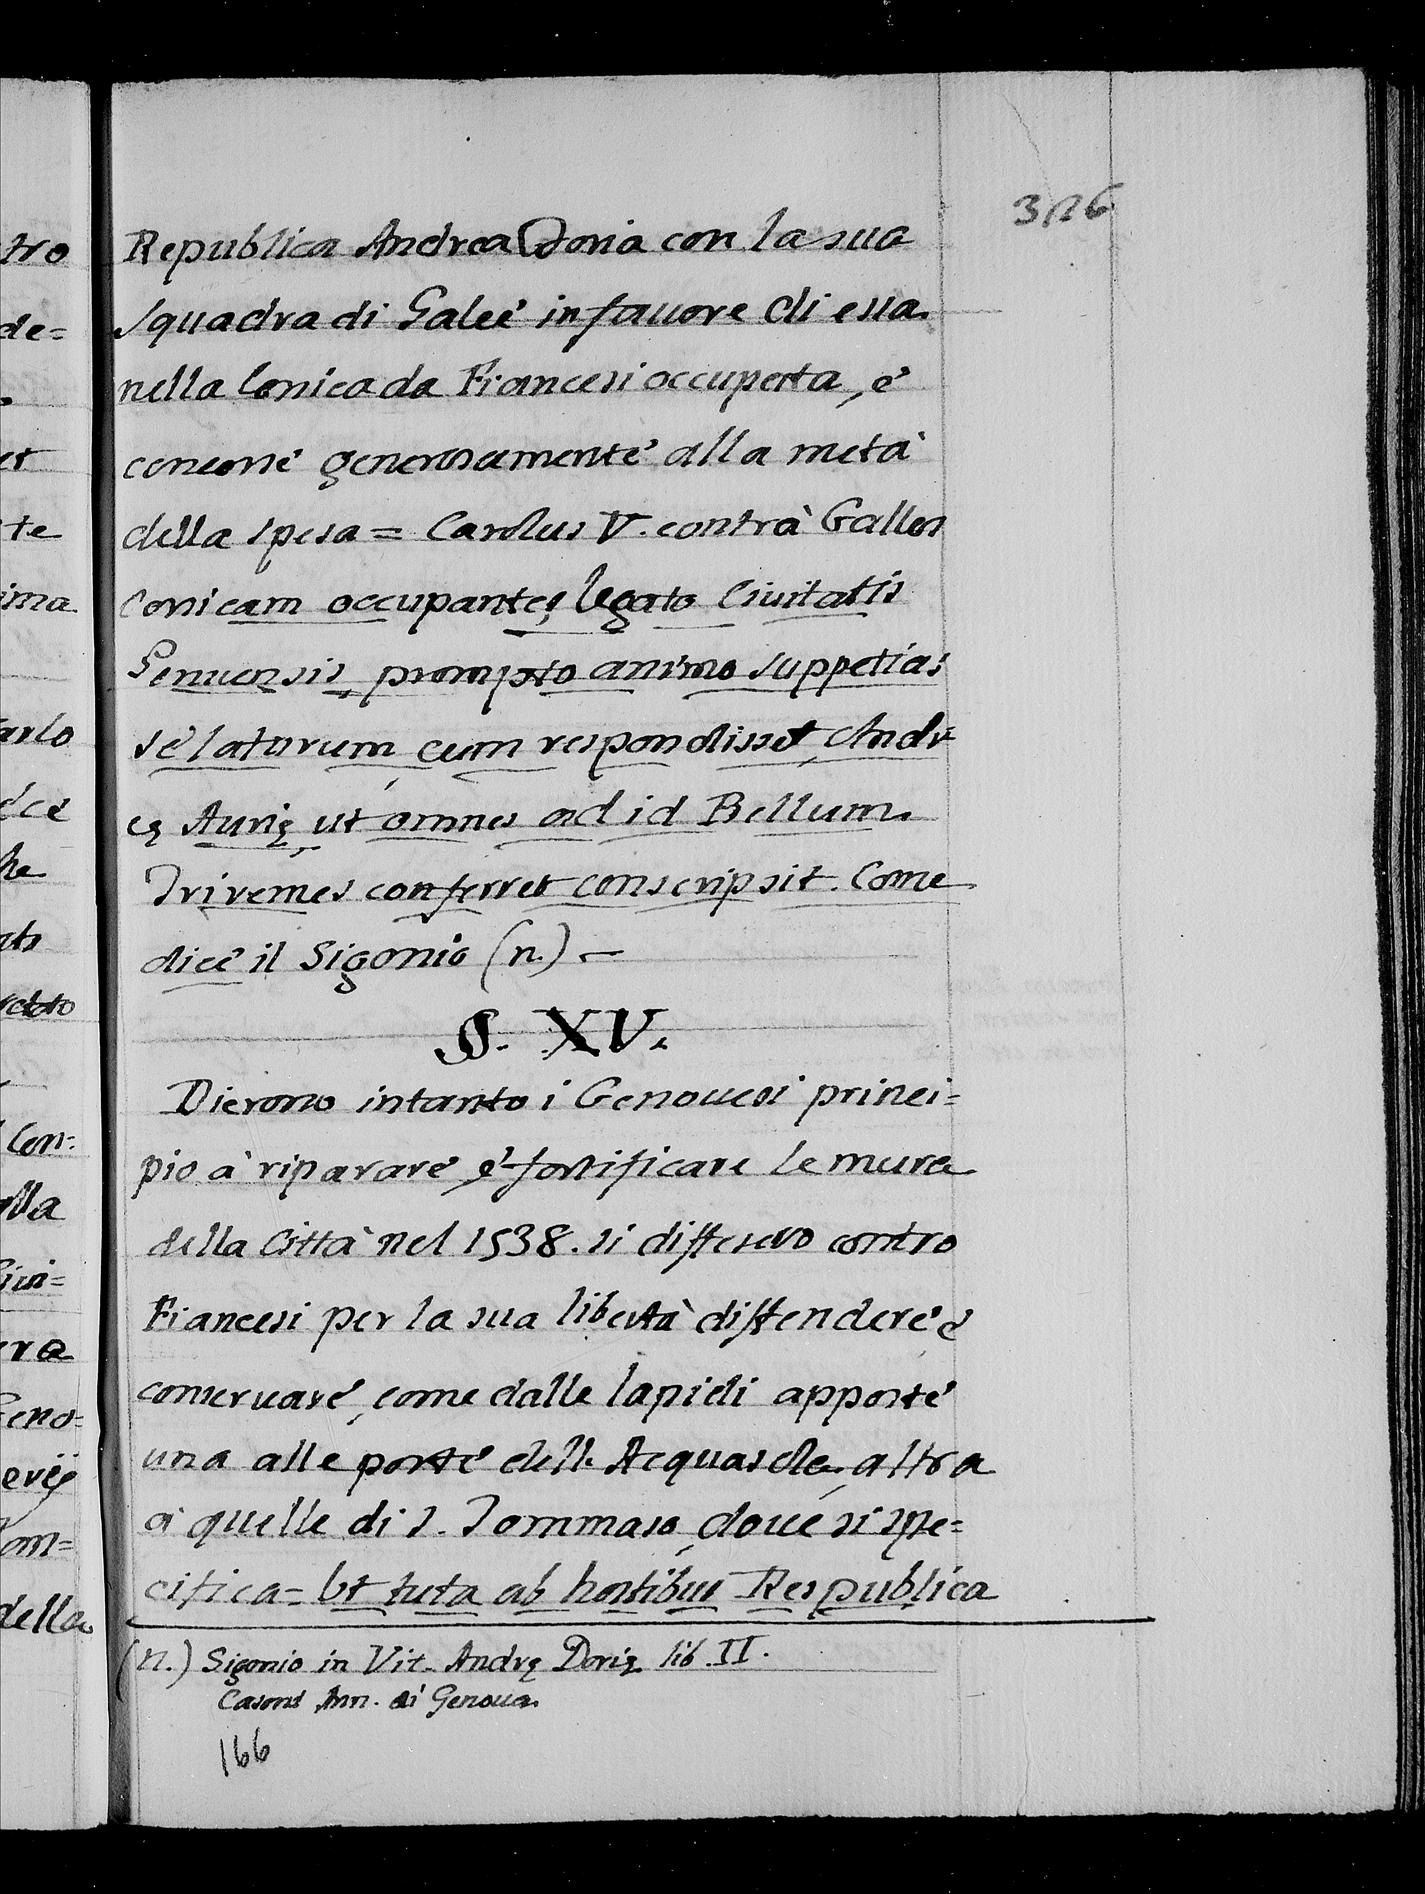 326
Republica Andrea Doria con la sua
squadra di Galeè in fauore di essa
nella Corsica da Francesi occupata, è
concorse generosamente alla metà
della spesa = Carolus V. contrà Gallos
Corsicam occupantes, legato Ciuitatis
Genuensis, prompto animo suppetias
sè laturum cum respondisset, Andr
eę Aurię, ut omnes ad id Bellum
Triremes conferret conscripsit. Come
dice il Sigonio (n.) —
§. XV.
Dierono intanto i Genouesi princi=
pio à riparare, è fortificare le mura
della Città nel 1538. si diffesero contro
Francesi per la sua libertà diffendere è
conseruare, come dalle lapidi apposte
una alle porte dell' Acquasola, altra
à quelle di S. Tommaso, doue si spe=
cifica = Ut tuta ab hostibus Respublica
(n.) Sigonio in Vit. Andrę Dorię lib. II.
Casoni Ann. di Genoua
166
tro
de=
et
te
ima
arlo
he
Con=
lla
Ciui=
ra
Geno=
om=
della